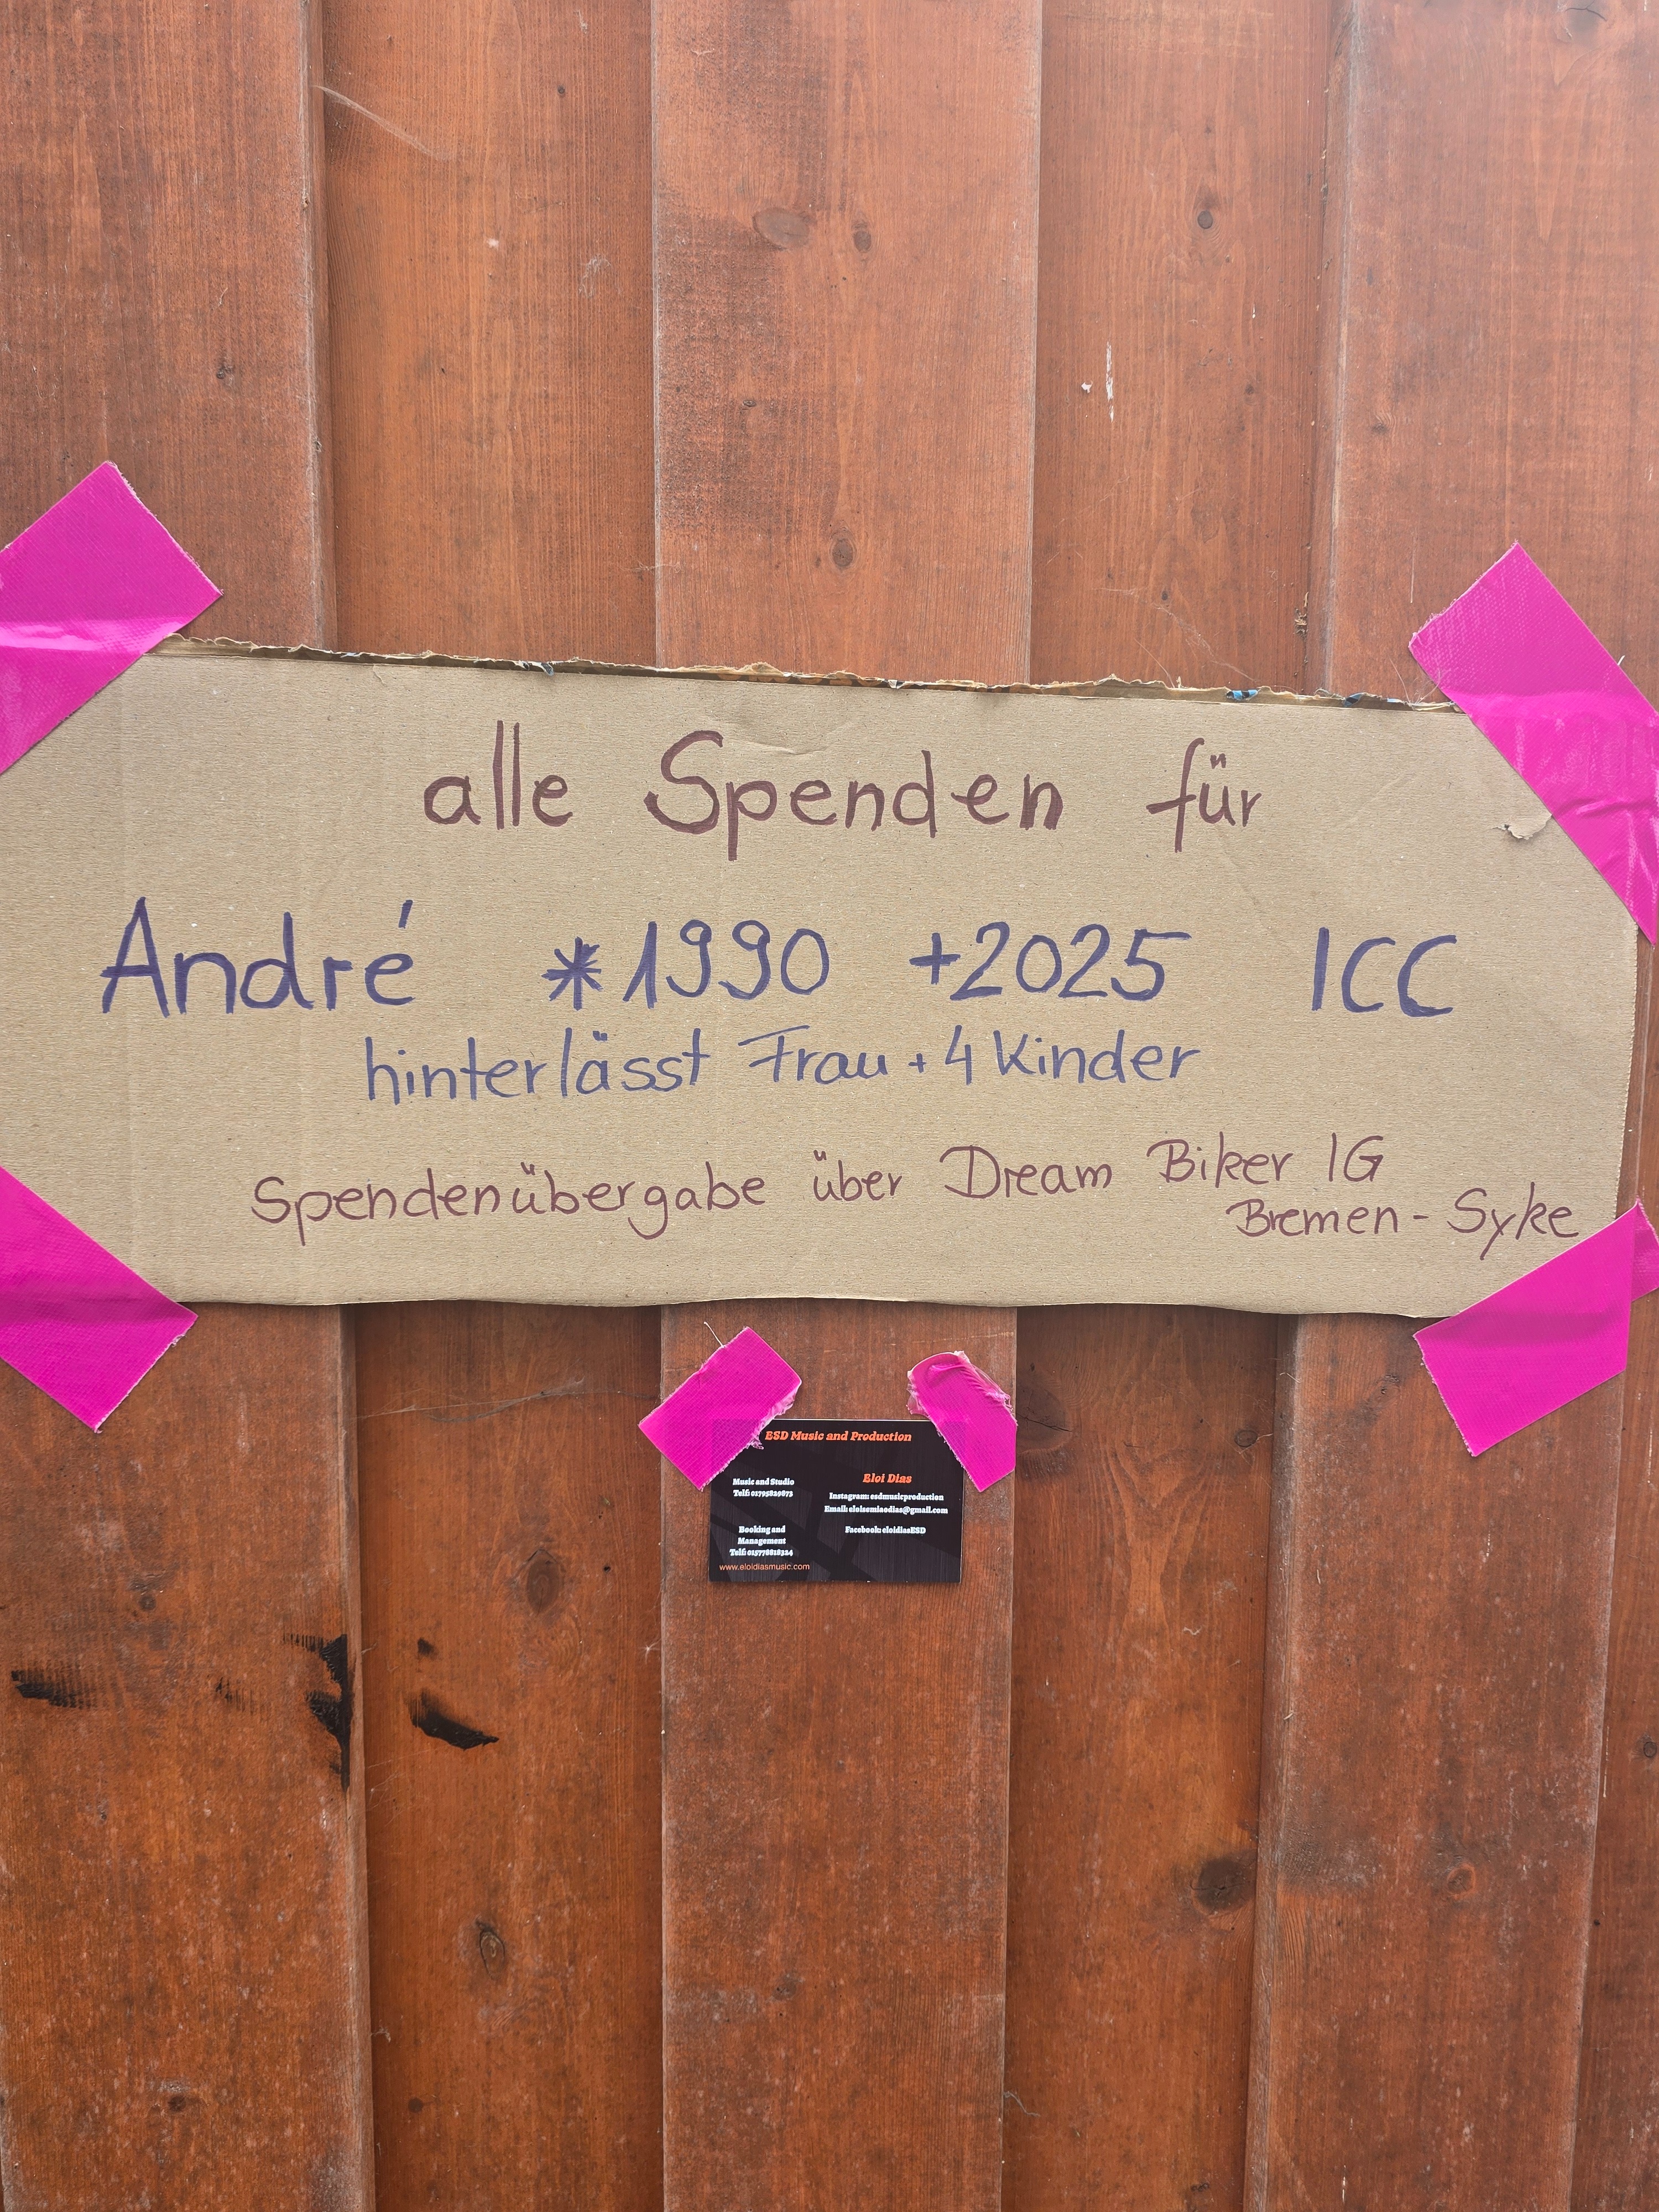 alle Spenden für
André *1990 +2025 ICC
hinterlässt Frau + 4 Kinder
Spendenübergabe über Dream Biker IG
Bremen - Syke
ESD Music and Production
Music and Studio
Telf: 01795829673
Booking and
Management
Telf: 015778818324
www.eloidiasmusic.com
Eloi Dias
Instagram: esdmusicproduction
Email: eloisemiaodias@gmail.com
Facebook: eloidiasESD